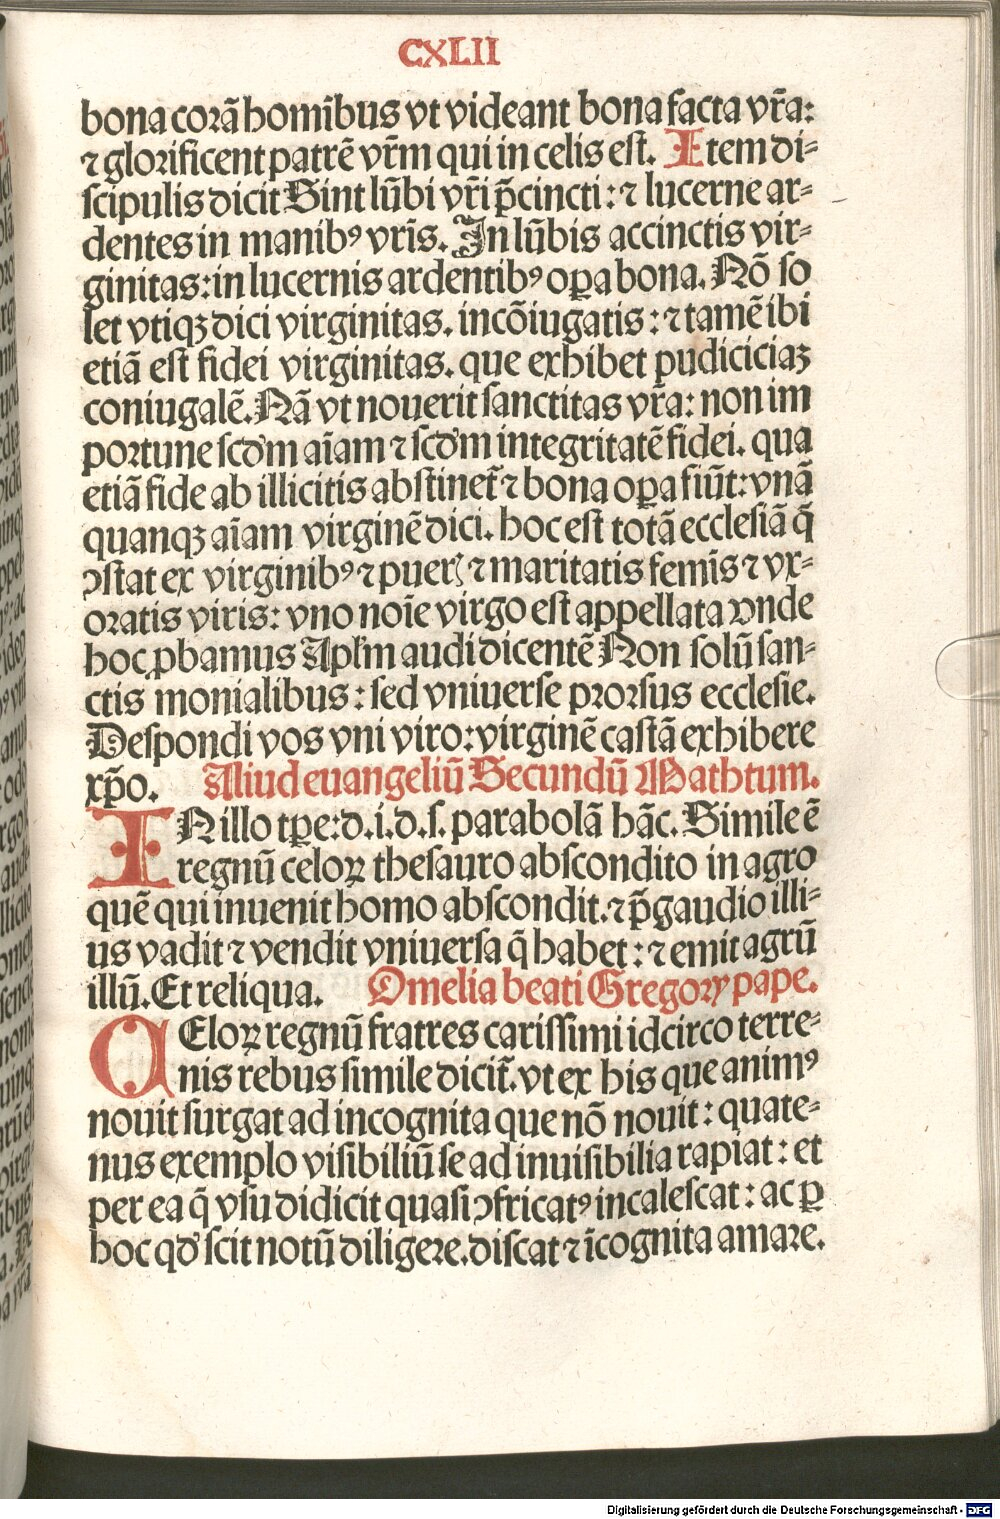 CXLII
bona corã homĩbus vt videant bona facta vr̃a:
⁊ glorificent patrẽ vr̃m qui in celis est. Item di⸗
scipulis dicit Sint lũbi vr̃i p̃cincti: ⁊ lucerne ar⸗
dentes in manibꝰ vr̃is. In lũbis accinctis vir⸗
ginitas: in lucernis ardentibꝰ oꝑa bona. Nõ so
let vtiqꝫ dici virginitas. incõiugatis: ⁊ tamẽ ibi
etiã est fidei virginitas. que exhibet pudiciciaꝫ
coniugalẽ. Nã vt nouerit sanctitas vr̃a: non im
portune scd'm aĩam ⁊ scd'm integritatẽ fidei. qua
etiã fide ab illicitis abstinet̃ ⁊ bona oꝑa fiũt: vnã
quanqꝫ aĩam virginẽ dici. hoc est totã ecclesiã q̃
ↄstat ex virginibꝰ ⁊ puerꝭ ⁊ maritatis femĩs ⁊ vx⸗
oratis viris: vno noĩe virgo est appellata vnde
hoc ꝓbamus Apl'm audi dicentẽ Non solũ san⸗
ctis monialibus: sed vniuerse prorsus ecclesie.
Despondi vos vni viro: virginẽ castã exhibere
xp̃o. Aliud euangeliũ Secundũ Mathtum.
IN illo tꝑe: d. i. d. s. parabolã hãc. Simile ẽ
regnũ celoꝝ thesauro abscondito in agro
quẽ qui inuenit homo abscondit. ⁊ p̃ gaudio illi⸗
us vadit ⁊ vendit vniuersa q̃ habet: ⁊ emit agrũ
illũ. Et reliqua. Omelia beati Gregorꝭ pape.
CEloꝝ regnũ fratres carissimi idcirco terre⸗
nis rebus simile dicit̃. vt ex his que animꝰ
nouit surgat ad incognita que nõ nouit: quate⸗
nus exemplo visibiliũ se ad inuisibilia rapiat: et
per ea q̃ vsu didicit quasi ↄfricatꝰ incalescat: ac ꝑ
hoc qd' scit notũ diligere. discat ⁊ ĩcognita amare.
Digitalisierung gefördert durch die Deutsche Forschungsgemeinschaft - DFG